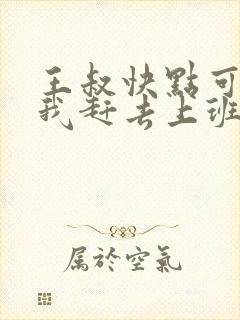 王叔快點可
我赶去上班
属於空氣